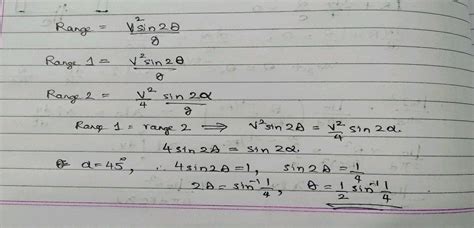 Range = V² sin 2θ / g
Range 1 = V² sin 2θ / g
Range 2 = V²/4 sin 2α / g
Range 1 = range 2 ⟹ V² sin 2θ = V²/4 sin 2α.
4 sin 2θ = sin 2α.
α = 45°, ∴ 4 sin 2θ = 1, sin 2θ = 1/4
2θ = sin⁻¹ 1/4, θ = 1/2 sin⁻¹ 1/4